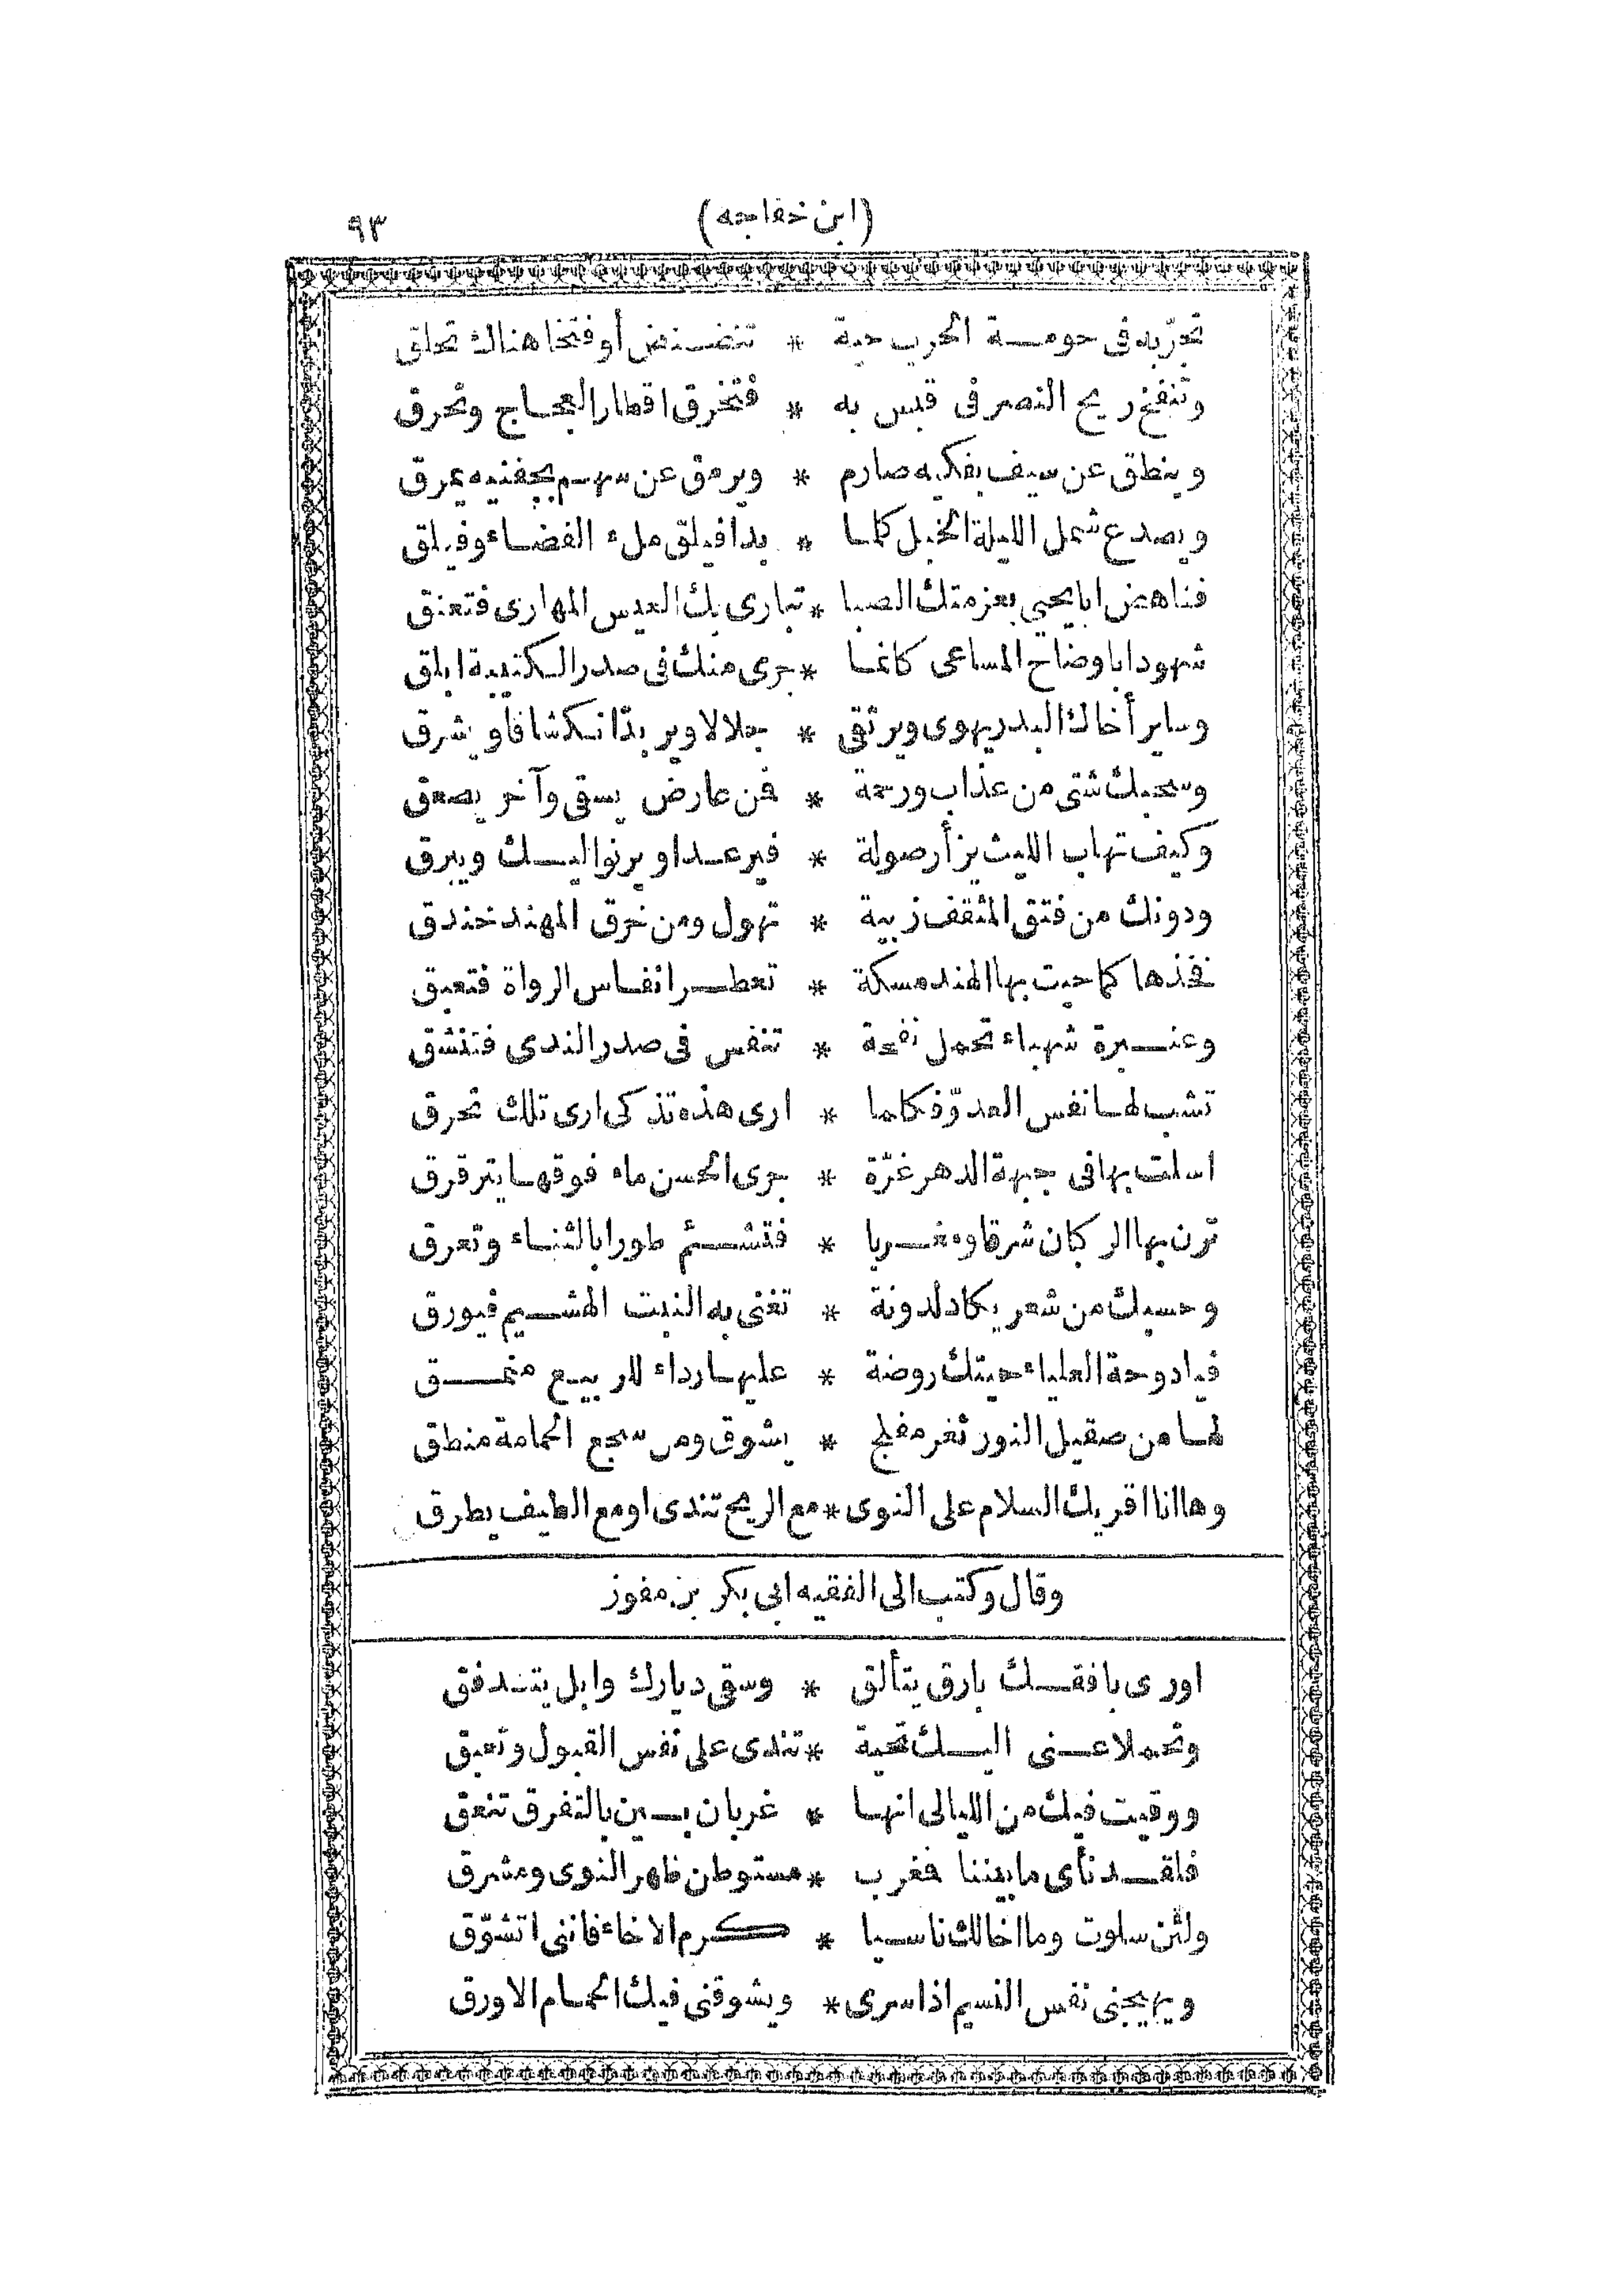 (ابن خفاجه) ٩٣
تجرّ به فى حومـة الحرب حية * تنضـنض أو فتخا هناك تحلق
وتنفخ ريح النصر فى قبس به * فتخرق اقطار العجـاج وتحرق
وينطق عن سيف بفكيه صارم * ويرمق عن سهـم بجفنيه يمرق
ويصدع شمل الليلة الخيل كلما * بدا فيلق ملء الفضـاء وفيلق
فناهض ابا يحيى بعزمتك الصبا * تبارى بك العيس المهارى فتعنق
شهودا با وضاح المساعى كانما * جرى منك فى صدر الكتيبة ابلق
وساير أخاك البدر يهوى ويرتقى * جلالا ويربدّ انكشافا ويشرق
وسحبك شتى من عذاب ورحمة * فمن عارض يسقى وآخر يصعق
وكيف تهاب الليث يزأر صولة * فيرعـد او يرنو اليـك ويبرق
ودونك من فتق المثقف زبية * تهول ومن خرق المهند خندق
فخذها كما حيت بها الهند مسكة * تعطـر انفاس الرواة فتعبق
وعنـبرة شهباء تحمل نفحة * تنفس فى صدر الندى فتنشق
تشب لهـا نفس العدوّ فكلما * ارى هذه تذكى ارى تلك تحرق
اسلت بها فى جبهة الدهر غرّة * جرى الحسن ماء فوقهـا يترقرق
ترن بها الركبان شرقا ومغـربا * فتشـئم طورا بالثنـاء وتعرق
وحسبك من شعر يكاد لدونة * تغنى به النبت الهشـيم فيورق
فيا دوحة العلياء حيتك روضة * عليهـا رداء للربيـع منمـق
لهـا من صقيل النور ثغر مفلج * يشوق ومن سجع الحمامة منطق
وها انا اقريك السلام على النوى * مع الريح تندى او مع الطيف يطرق
وقال وكتب الى الفقيه ابى بكر بن مفوز
اورى بافقـك بارق يتألق * وسقى ديارك وابل يتـدفق
وتحملا عـنى اليـك تحية * تندى على نفس القبول وتعبق
ووقيت فيك من الليالى انهـا * غربان بـين بالتفرق تنعق
فلقـد نأى ما بيننا فمغرب * مستوطن ظهر النوى ومشرق
ولئن سلوت وما اخالك ناسـيا * كـرم الاخاء فاننى اتشوّق
ويهيجنى نفس النسيم اذا سرى * ويشوقنى فيك الحمـام الاورق